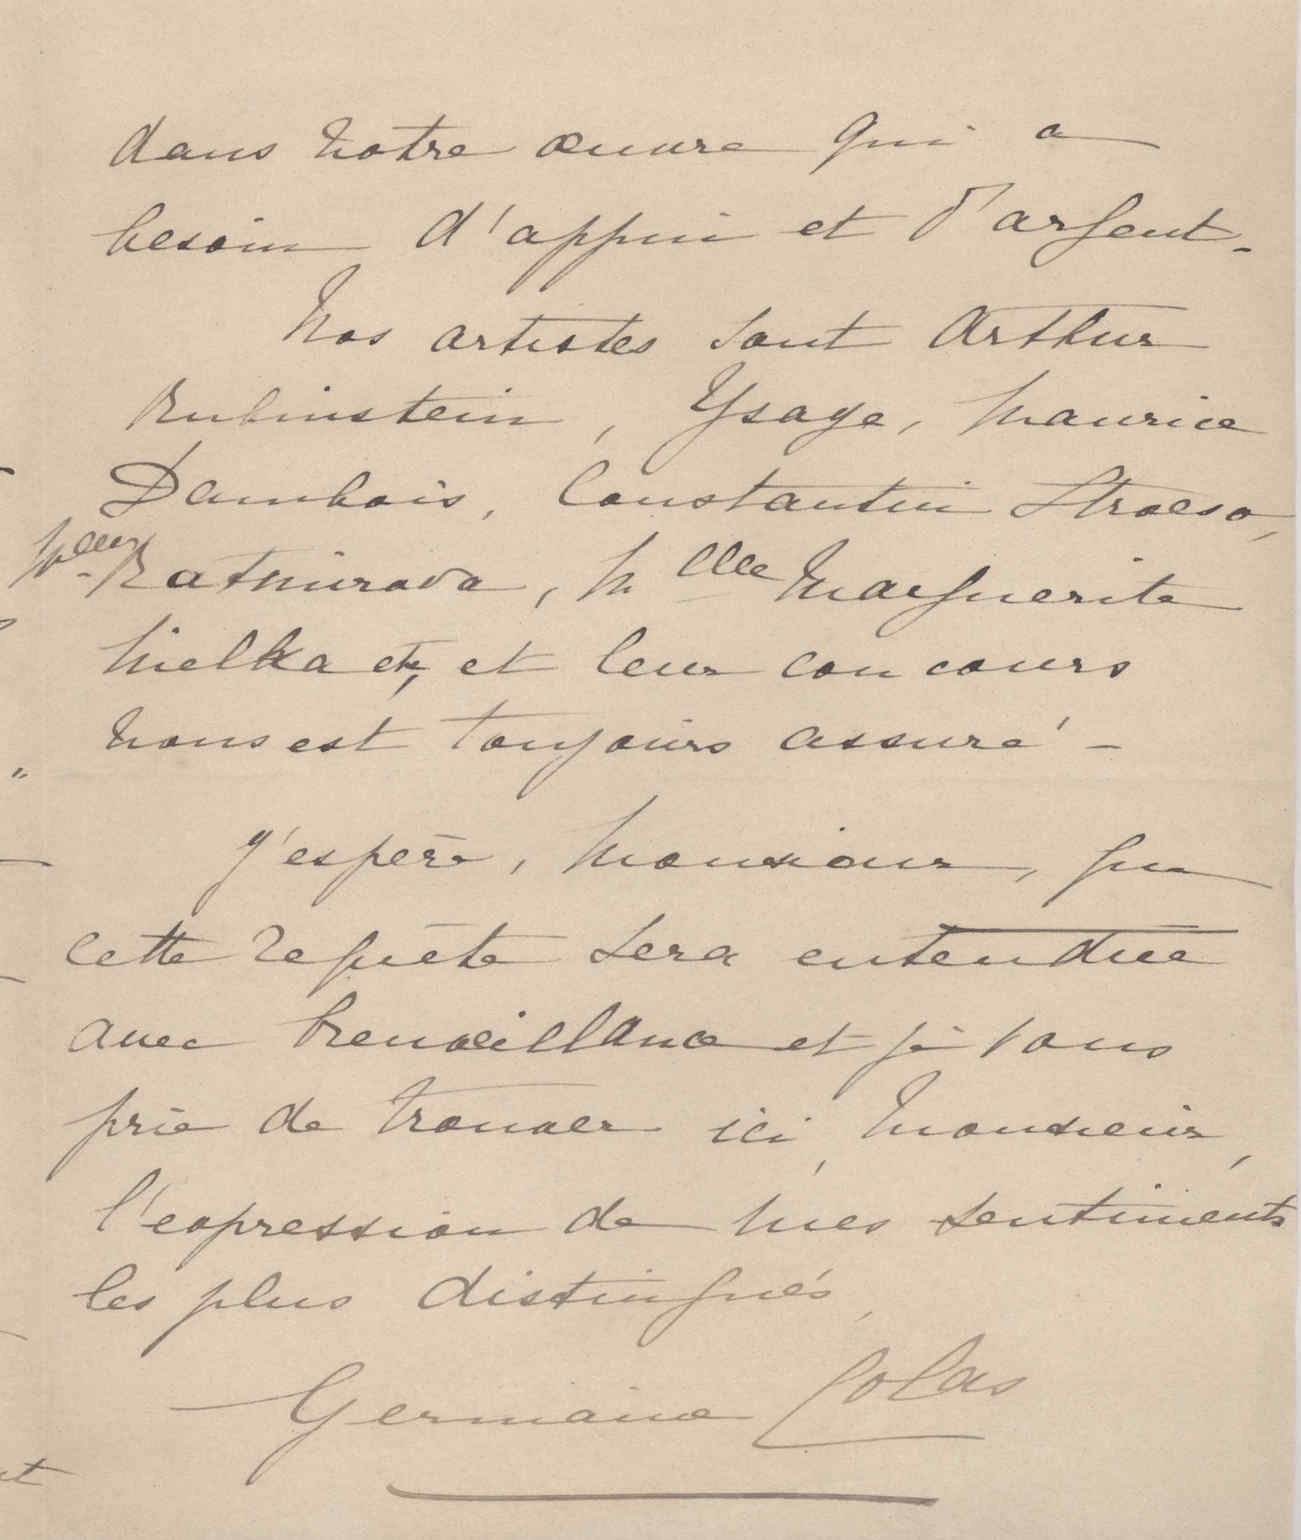 dans notre œuvre qui a
besoin d'appui et d'argent -
Nos artistes sont Arthur
Rubinstein, Ysaye, Maurice
Dambois, Constantin Stroesco,
Mlle Ratmirova, Mlle Marguerite
Nielka etc, et leur concours
nous est toujours assuré -
J'espère, Monsieur, que
cette requête sera entendue
avec bienveillance et je vous
prie de trouver ici, Monsieur,
l'expression de mes sentiments
les plus distingués,
Germaine Colas